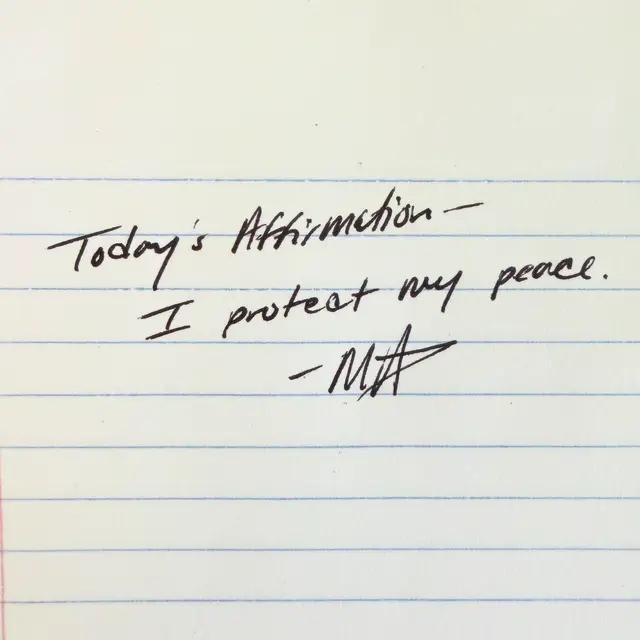 Today's Affirmation—
I protect my peace.
-MA